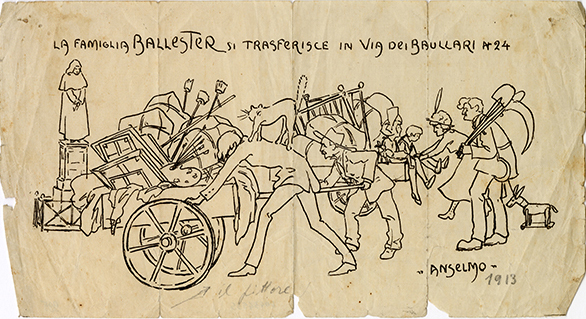 LA FAMIGLIA BALLESTER SI TRASFERISCE IN VIA DEI BAULLARI N 24
- ANSELMO -
1913
il pittore